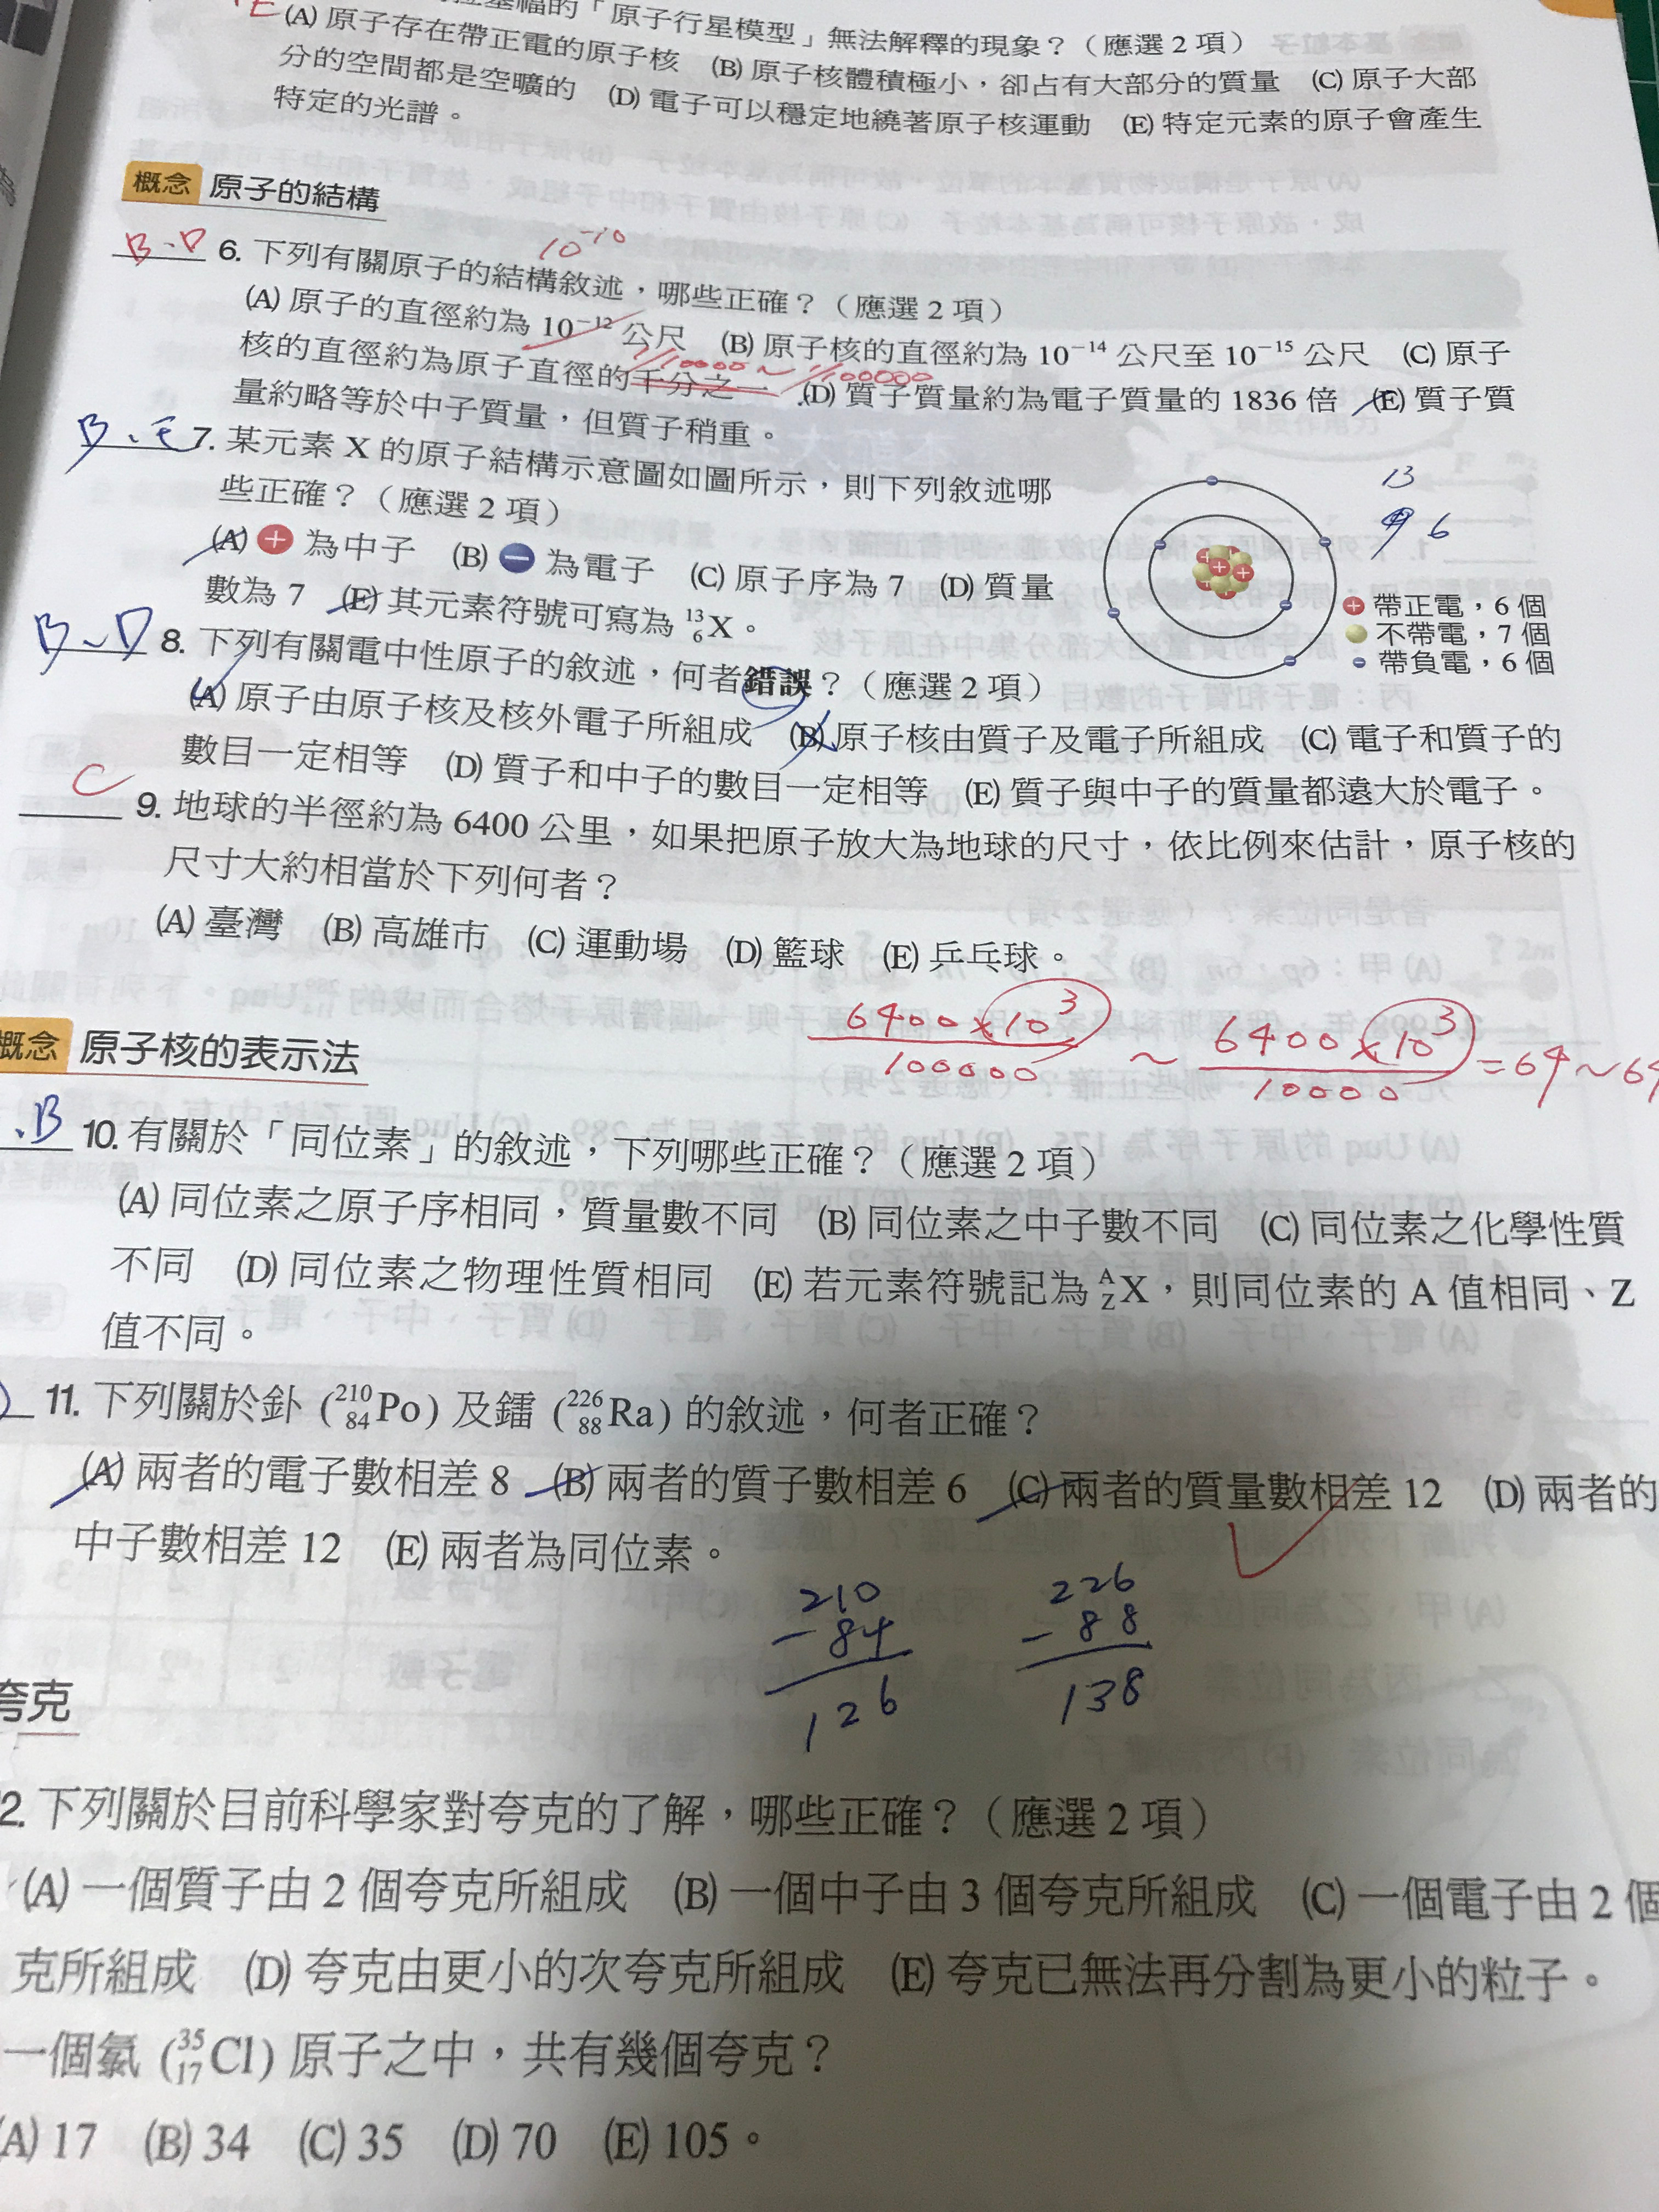 「原子行星模型」無法解釋的現象？（應選 2 項）
E (A) 原子存在帶正電的原子核 (B) 原子核體積極小，卻占有大部分的質量 (C) 原子大部
分的空間都是空曠的 (D) 電子可以穩定地繞著原子核運動 (E) 特定元素的原子會產生
特定的光譜。
概念 原子的結構
B、D 6. 下列有關原子的結構敘述，哪些正確？（應選 2 項）
10⁻¹⁰
(A) 原子的直徑約為 10⁻¹² 公尺 (B) 原子核的直徑約為 10⁻¹⁴ 公尺至 10⁻¹⁵ 公尺 (C) 原子
1/10000 ~ 1/100000
核的直徑約為原子直徑的千分之一 (D) 質子質量約為電子質量的 1836 倍 (E) 質子質
量約略等於中子質量，但質子稍重。
B、E 7. 某元素 X 的原子結構示意圖如圖所示，則下列敘述哪
些正確？（應選 2 項）
(A) + 為中子 (B) − 為電子 (C) 原子序為 7 (D) 質量
數為 7 (E) 其元素符號可寫為 ¹³₆X。
13
6
+ 帶正電，6 個
不帶電，7 個
− 帶負電，6 個
B、D 8. 下列有關電中性原子的敘述，何者錯誤？（應選 2 項）
(A) 原子由原子核及核外電子所組成 (B) 原子核由質子及電子所組成 (C) 電子和質子的
數目一定相等 (D) 質子和中子的數目一定相等 (E) 質子與中子的質量都遠大於電子。
C 9. 地球的半徑約為 6400 公里，如果把原子放大為地球的尺寸，依比例來估計，原子核的
尺寸大約相當於下列何者？
(A) 臺灣 (B) 高雄市 (C) 運動場 (D) 籃球 (E) 乒乓球。
6400×10³/100000 ~ 6400×10³/10000 = 64~64
概念 原子核的表示法
、B 10. 有關於「同位素」的敘述，下列哪些正確？（應選 2 項）
(A) 同位素之原子序相同，質量數不同 (B) 同位素之中子數不同 (C) 同位素之化學性質
不同 (D) 同位素之物理性質相同 (E) 若元素符號記為 ᴬ_ZX，則同位素的 A 值相同、Z
值不同。
11. 下列關於釙（²¹⁰₈₄Po）及鐳（²²⁶₈₈Ra）的敘述，何者正確？
(A) 兩者的電子數相差 8 (B) 兩者的質子數相差 6 (C) 兩者的質量數相差 12 (D) 兩者的
中子數相差 12 (E) 兩者為同位素。
210 226
− 84 − 88
126 138
夸克
2. 下列關於目前科學家對夸克的了解，哪些正確？（應選 2 項）
(A) 一個質子由 2 個夸克所組成 (B) 一個中子由 3 個夸克所組成 (C) 一個電子由 2 個
克所組成 (D) 夸克由更小的次夸克所組成 (E) 夸克已無法再分割為更小的粒子。
一個氯（³⁵₁₇Cl）原子之中，共有幾個夸克？
(A) 17 (B) 34 (C) 35 (D) 70 (E) 105。